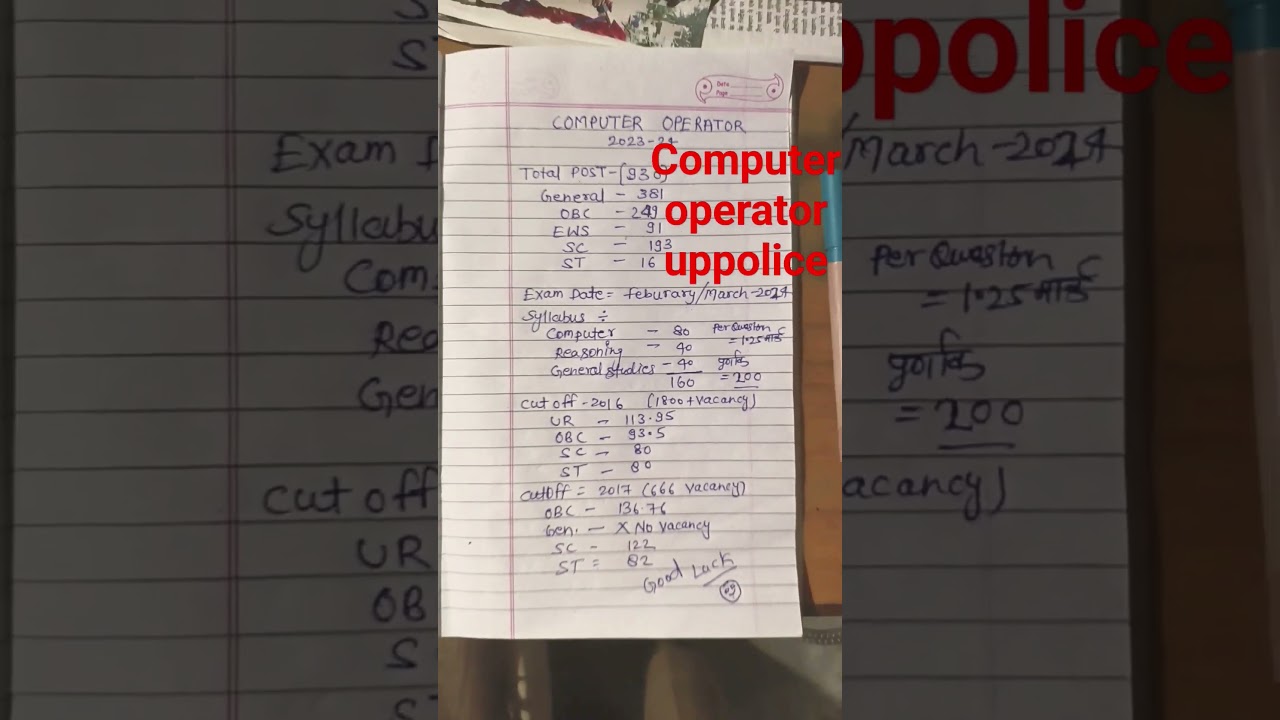 Date
Page
COMPUTER OPERATOR
2023-24
Total POST-(930)
General - 381
OBC - 249
EWS - 91
SC - 193
ST - 16
Exam Date = feburary/March-2024
Syllabus ÷
Computer - 80 Per Question
= 1.25 मार्क
Reasoning - 40
General studies - 40 पूर्णांक
160 = 200
Cut off - 2016 (1800+vacancy)
UR - 113.95
OBC - 93.5
SC - 80
ST - 80
Cutoff = 2017 (666 vacancy)
OBC - 136.76
Gen. - X No vacancy
SC - 122
ST = 82
Good Luck
Computer
operator
uppolice
ppolice
Exam
/March-2024
Syllabus
Com
Per Question
= 1.25 मार्क
Rea
पूर्णांक
Gen
= 200
Cut off
acancy)
UR
OB
S